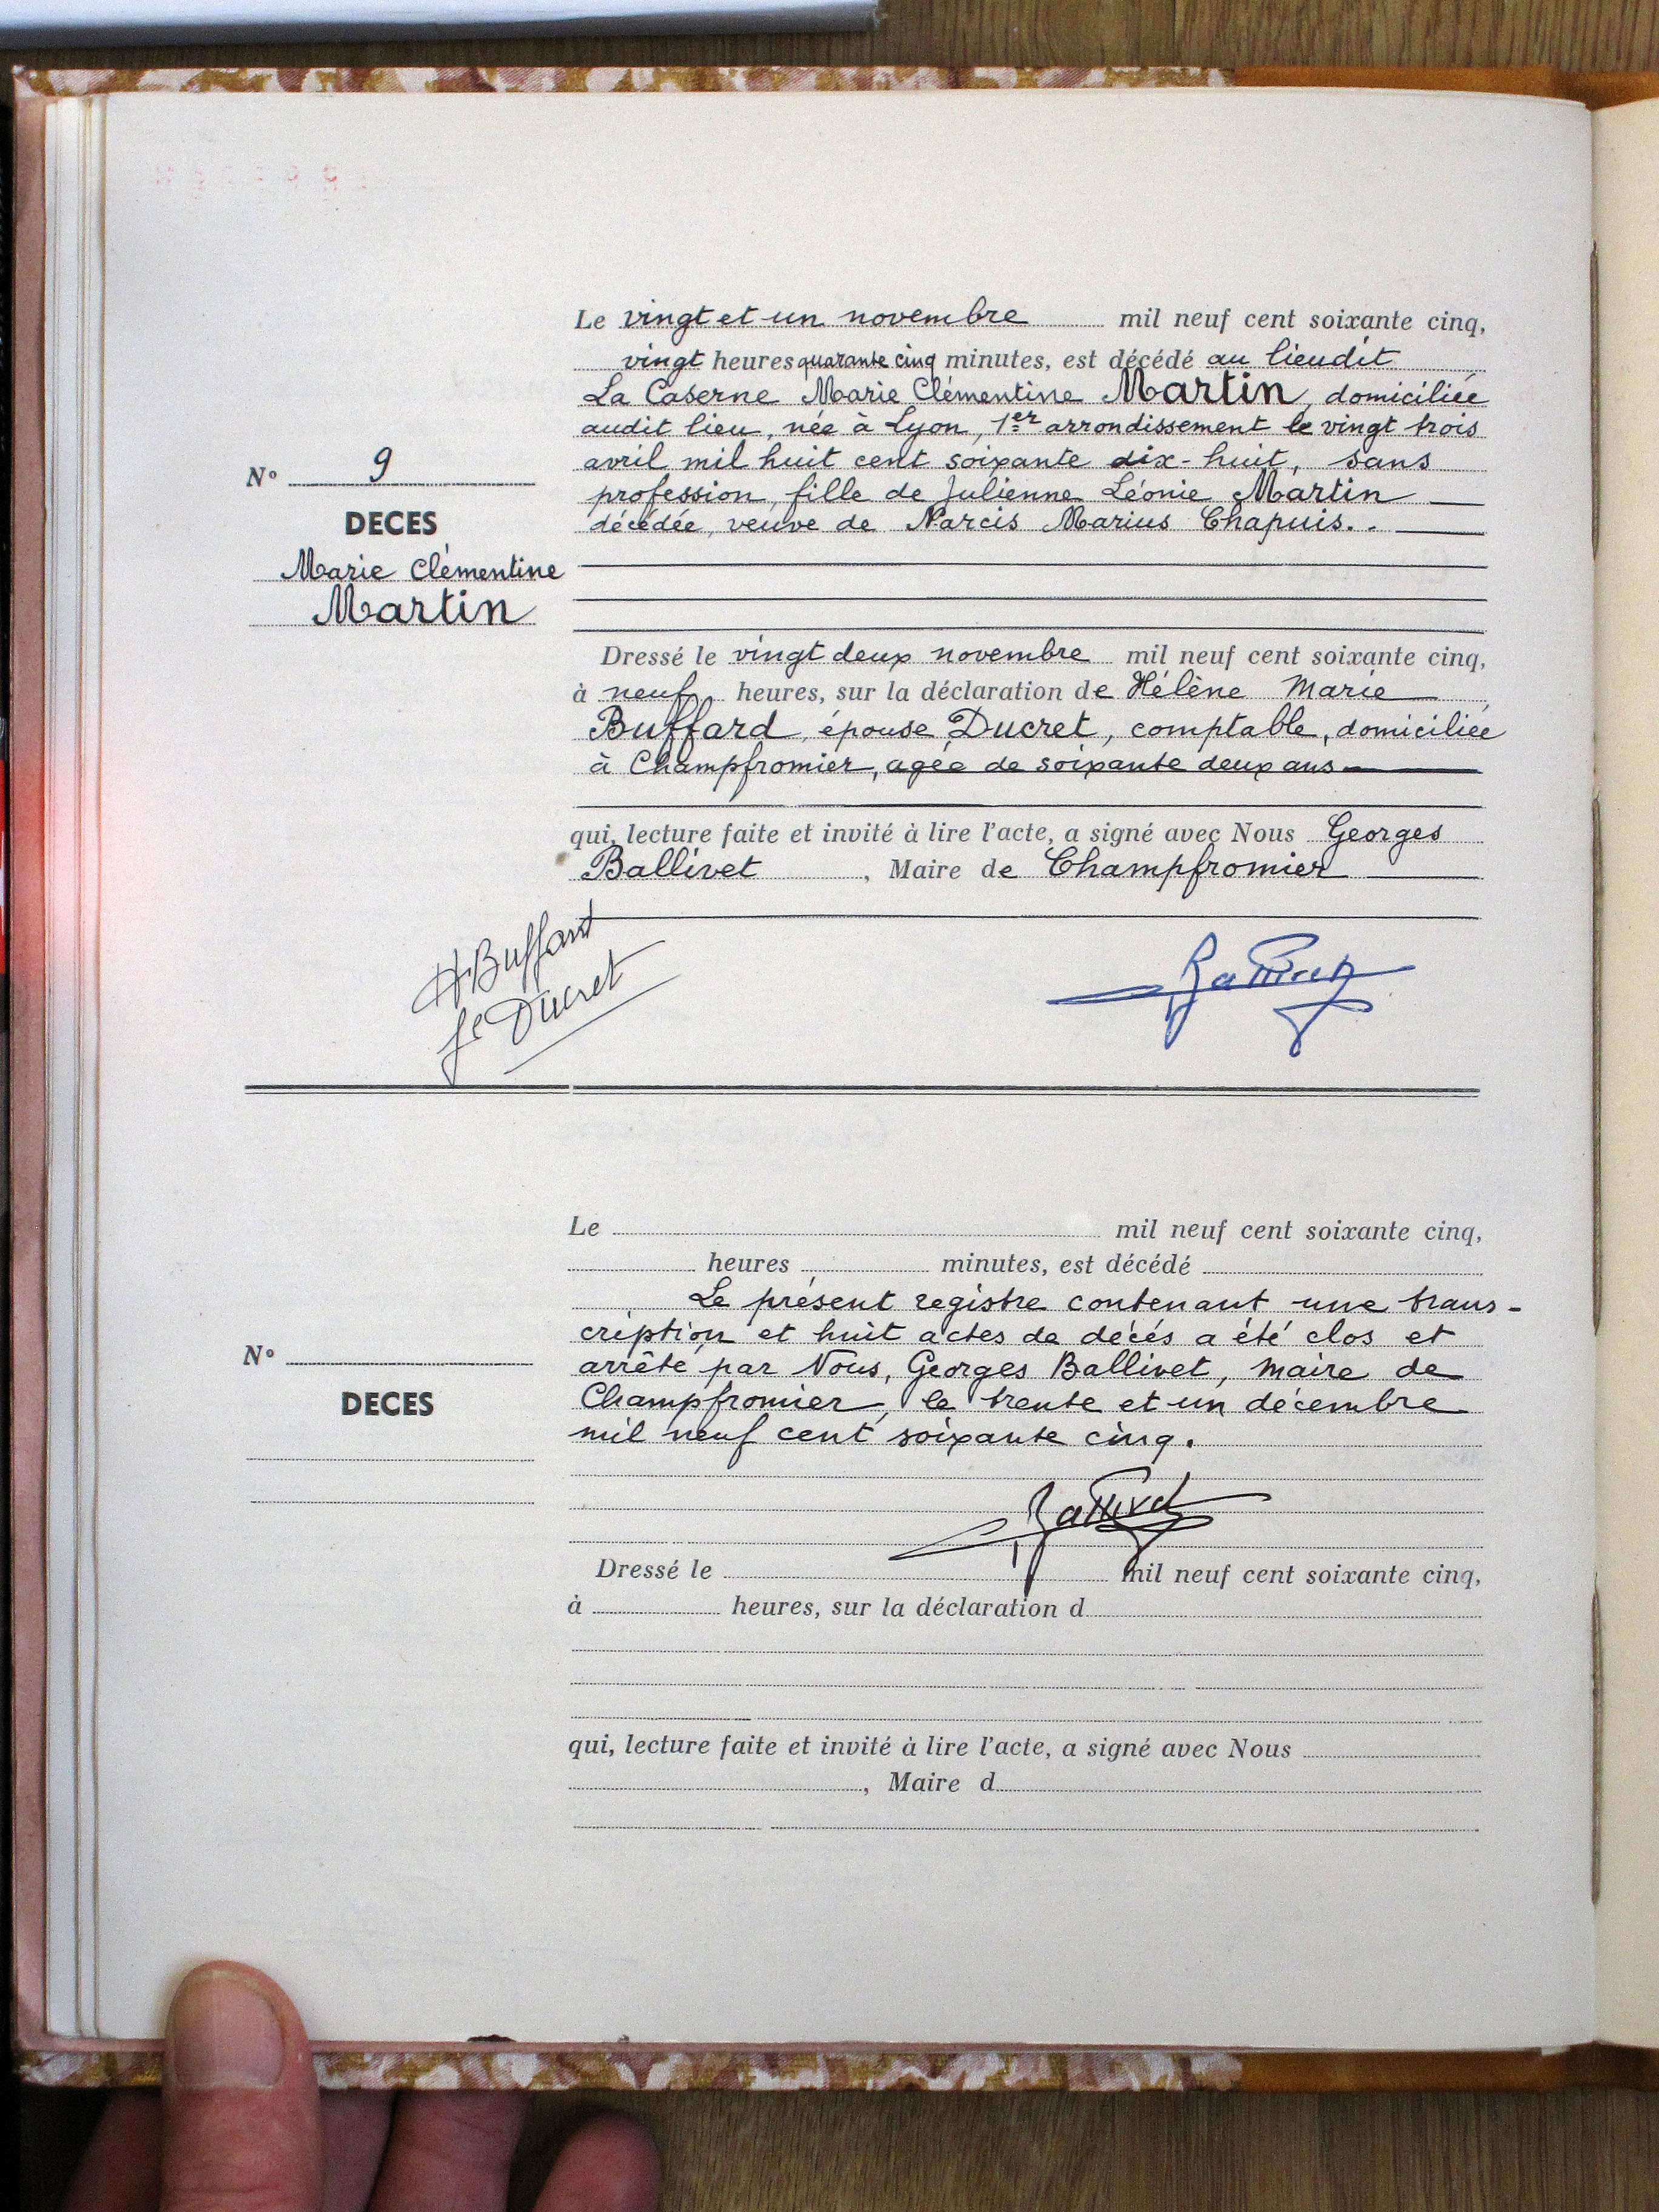 Le vingt et un novembre mil neuf cent soixante cinq,
vingt heures quarante cinq minutes, est décédé au lieudit
La Caserne Marie Clémentine Martin, domiciliée
audit lieu, née à Lyon, 1er arrondissement le vingt trois
avril mil huit cent soixante dix-huit, sans
profession, fille de Julienne Léonie Martin
décédée, veuve de Narcis Marius Chapuis..
N° 9
DECES
Marie Clémentine
Martin
Dressé le vingt deux novembre mil neuf cent soixante cinq,
à neuf heures, sur la déclaration de Hélène Marie
Buffard, épouse Ducret, comptable, domiciliée
à Champfromier, agée de soixante deux ans
qui, lecture faite et invité à lire l'acte, a signé avec Nous Georges
Ballivet, Maire de Champfromier
H Buffard
fe Ducret
Le mil neuf cent soixante cinq,
heures minutes, est décédé
Le présent registre contenant une trans-
cription et huit actes de décés a été clos et
arrêté par Nous, Georges Ballivet, maire de
Champfromier, le trente et un décembre
mil neuf cent soixante cinq.
N°
DECES
Ballivet
Dressé le mil neuf cent soixante cinq,
à heures, sur la déclaration d
qui, lecture faite et invité à lire l'acte, a signé avec Nous
, Maire d